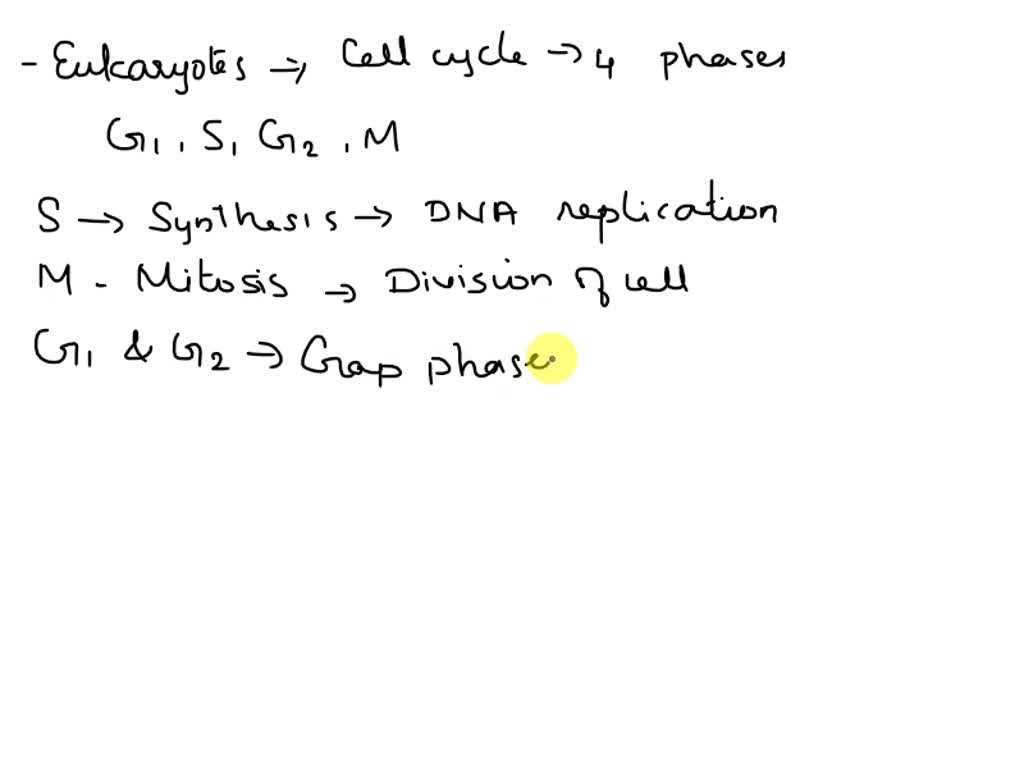 - Eukaryotes → Cell cycle → 4 phases
G1, S, G2, M
S → Synthesis → DNA replication
M - Mitosis → Division of cell
G1 & G2 → Gap phase